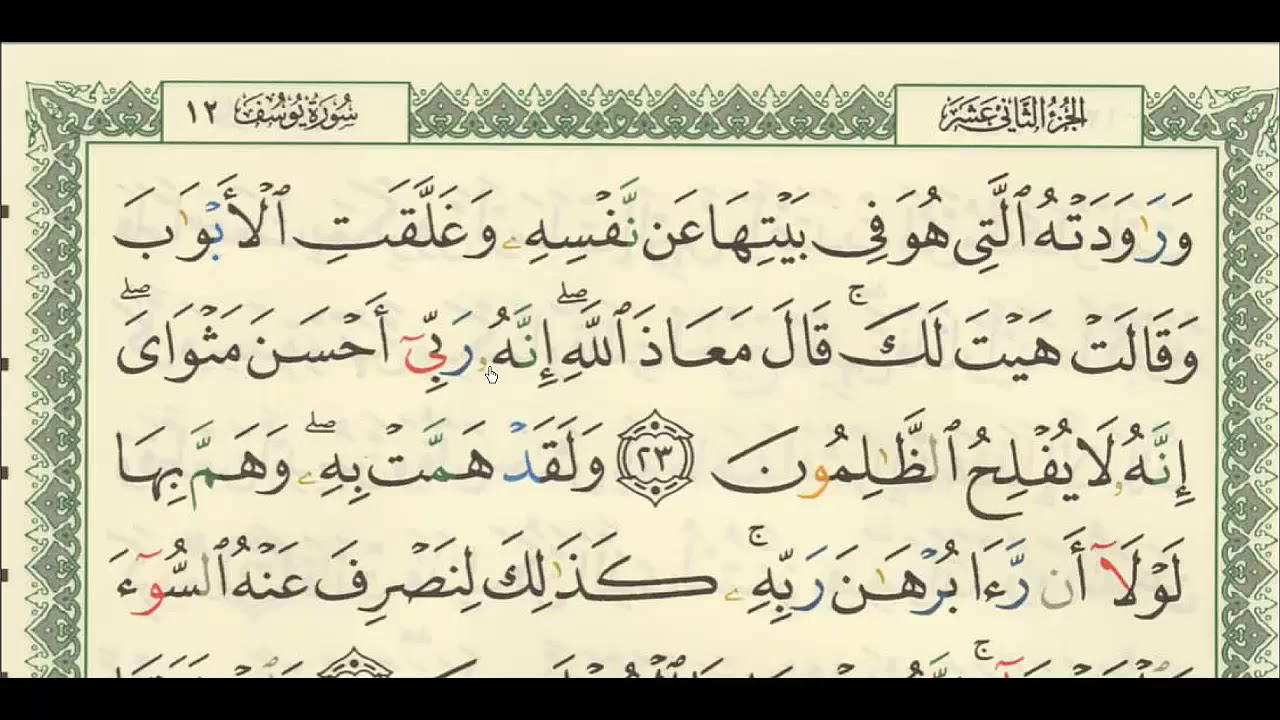 الجزء الثاني عشر
سورة يوسف ١٢
وَرَٰوَدَتْهُ ٱلَّتِى هُوَ فِى بَيْتِهَا عَن نَّفْسِهِۦ وَغَلَّقَتِ ٱلْأَبْوَٰبَ
وَقَالَتْ هَيْتَ لَكَ ۚ قَالَ مَعَاذَ ٱللَّهِ ۖ إِنَّهُۥ رَبِّىٓ أَحْسَنَ مَثْوَاىَ ۖ
إِنَّهُۥ لَا يُفْلِحُ ٱلظَّٰلِمُونَ ٢٣ وَلَقَدْ هَمَّتْ بِهِۦ ۖ وَهَمَّ بِهَا
لَوْلَآ أَن رَّءَا بُرْهَٰنَ رَبِّهِۦ ۚ كَذَٰلِكَ لِنَصْرِفَ عَنْهُ ٱلسُّوٓءَ